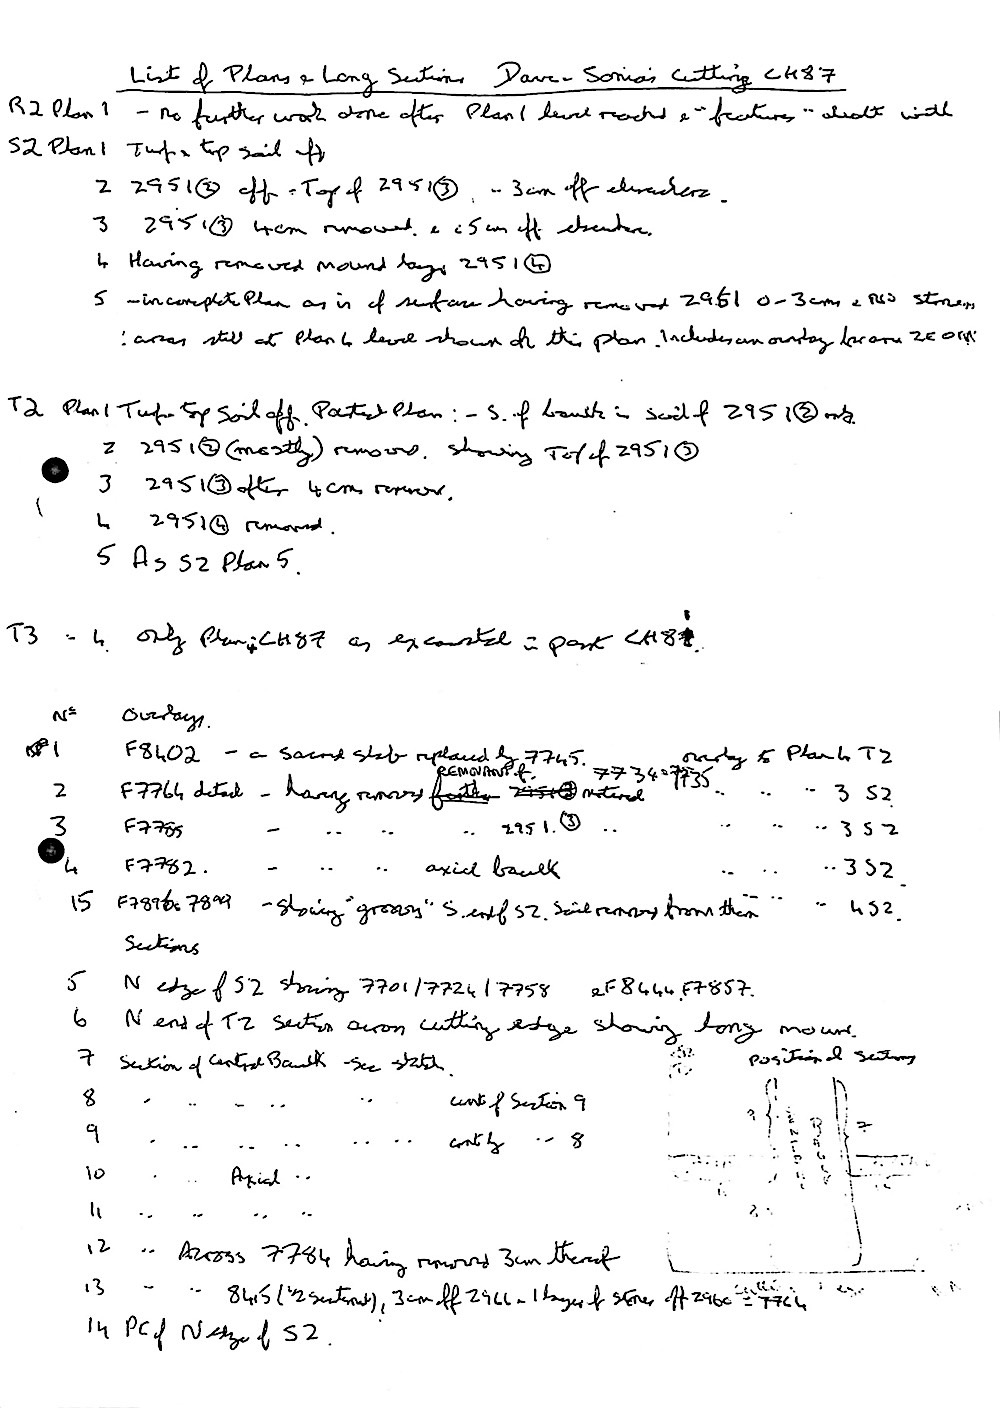 List of Plans & Long Sections Dave - Sonia's Cutting CH87
R2 Plan 1 - no further work done after Plan 1 level reached & "features" dealt with
S2 Plan 1 Turf & top soil off
2 2951② off = Top of 2951③ - 3cm off elsewhere.
3 2951③ 4cm removed & c 5cm off elsewhere.
4 Having removed mound layer 2951④
5 - incomplete Plan as is of surface having removed 2961 0-3cms & stones
: areas still at Plan 4 level shown on this plan. Includes an overlay for
T2 Plan 1 Turf & top soil off. Partial Plan :- S. of baulk is soil of 2951② only.
2 2951② (mostly) removed. showing Top of 2951③
3 2951③ after 4cms removed.
4 2951④ removed.
5 As S2 Plan 5.
T3 - 4 only Plan CH87 as excavated in part CH8
Nº Overlays.
1 F8402 - a second slab replaced by 7745. overlay to Plan 4 T2
REMOVAL of 7734 = 7735
2 F7764 detail - having removed further 2951③ material " " " 3 S2
3 F7785 - " " " 2951.③ " " " " 3 S2
4 F7782. - " " axial baulk " " " 3 S2
15 F7896 7899 - showing "grooves" S. end of S2. Soil removed from them " " 4 S2.
Sections
5 N edge of S2 showing 7701/7724/7758 & F8444 F7857.
6 N end of T2 section across cutting edge showing long mound.
7 Section of Central Baulk - see sketch. Position of sections
8 " " " " " cont of Section 9
9 " " " " " " cont by " 8
10 " " Axial "
11 " " " "
12 " Across 7784 having removed 3cm thereof
13 " " 8415 (½ sectioned), 3cm off 2961 - 1 layer of stones off 2960 = 7764
14 PC of N edge of S2.